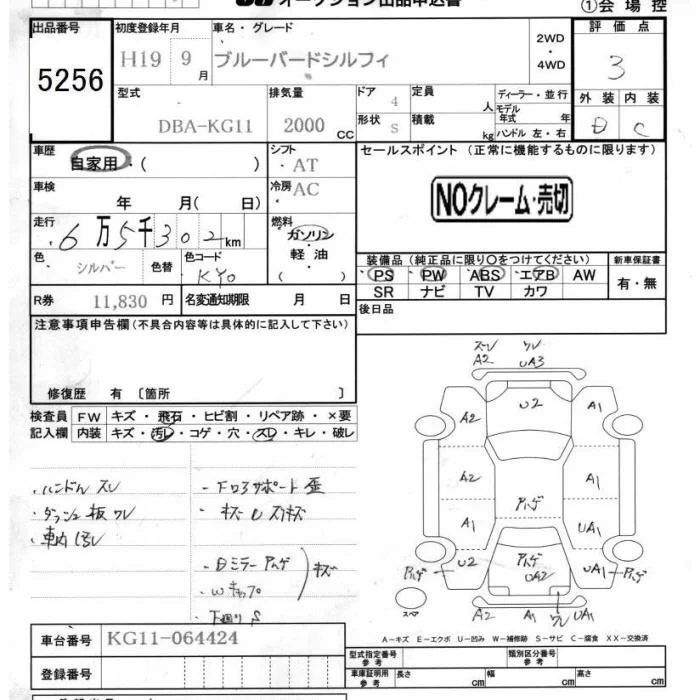 オークション出品申込書
①会場控
出品番号
5256
初度登録年月
H19 9月
車名・グレード
ブルーバードシルフィ
2WD
・
4WD
評価点
3
型式
DBA-KG11
排気量
2000 CC
ドア
4
形状
S
定員
人
積載
kg
ディーラー・並行
モデル年式 年
ハンドル 左・右
外装 内装
D C
車歴
自家用・( )
シフト
・AT
車検
年 月( 日)
冷房
・AC
走行
6万5千302km
燃料
ガソリン
軽油
( )
色
シルバー
色替
色コード
KY0
R券 11,830円
名変通知期限 月 日
セールスポイント(正常に機能するものに限ります)
NOクレーム・売切
装備品(純正品に限り○をつけてください)
PS PW ABS エアB AW
SR ナビ TV カワ
新車保証書
有・無
後日品
注意事項申告欄(不具合内容等は具体的に記入して下さい)
修復歴 有〔箇所 〕
検査員記入欄
FW キズ・飛石・ヒビ割・リペア跡・×要
内装 キズ・汚レ・コゲ・穴・スレ・キレ・破レ
・ハンドル スレ
・ダッシュ板 ワレ
・車内 汚レ
・キズ U スリキズ
・下廻り S
スレ ワレ
A2 UA3
A2 U2 A1
A2 A1
アトゲ
A1 UA1
U2 アトゲ UA2 UA1
アトゲ アトゲ
スペア
A2 A1 ワレ UA1
A−キズ E−エクボ U−凹み W−補修跡 S−サビ C−腐食 XX−交換済
車台番号 KG11-064424
登録番号
型式指定番号 参考
類別区分番号 参考
車庫証明用 参考
長さ cm 幅 cm 高さ cm